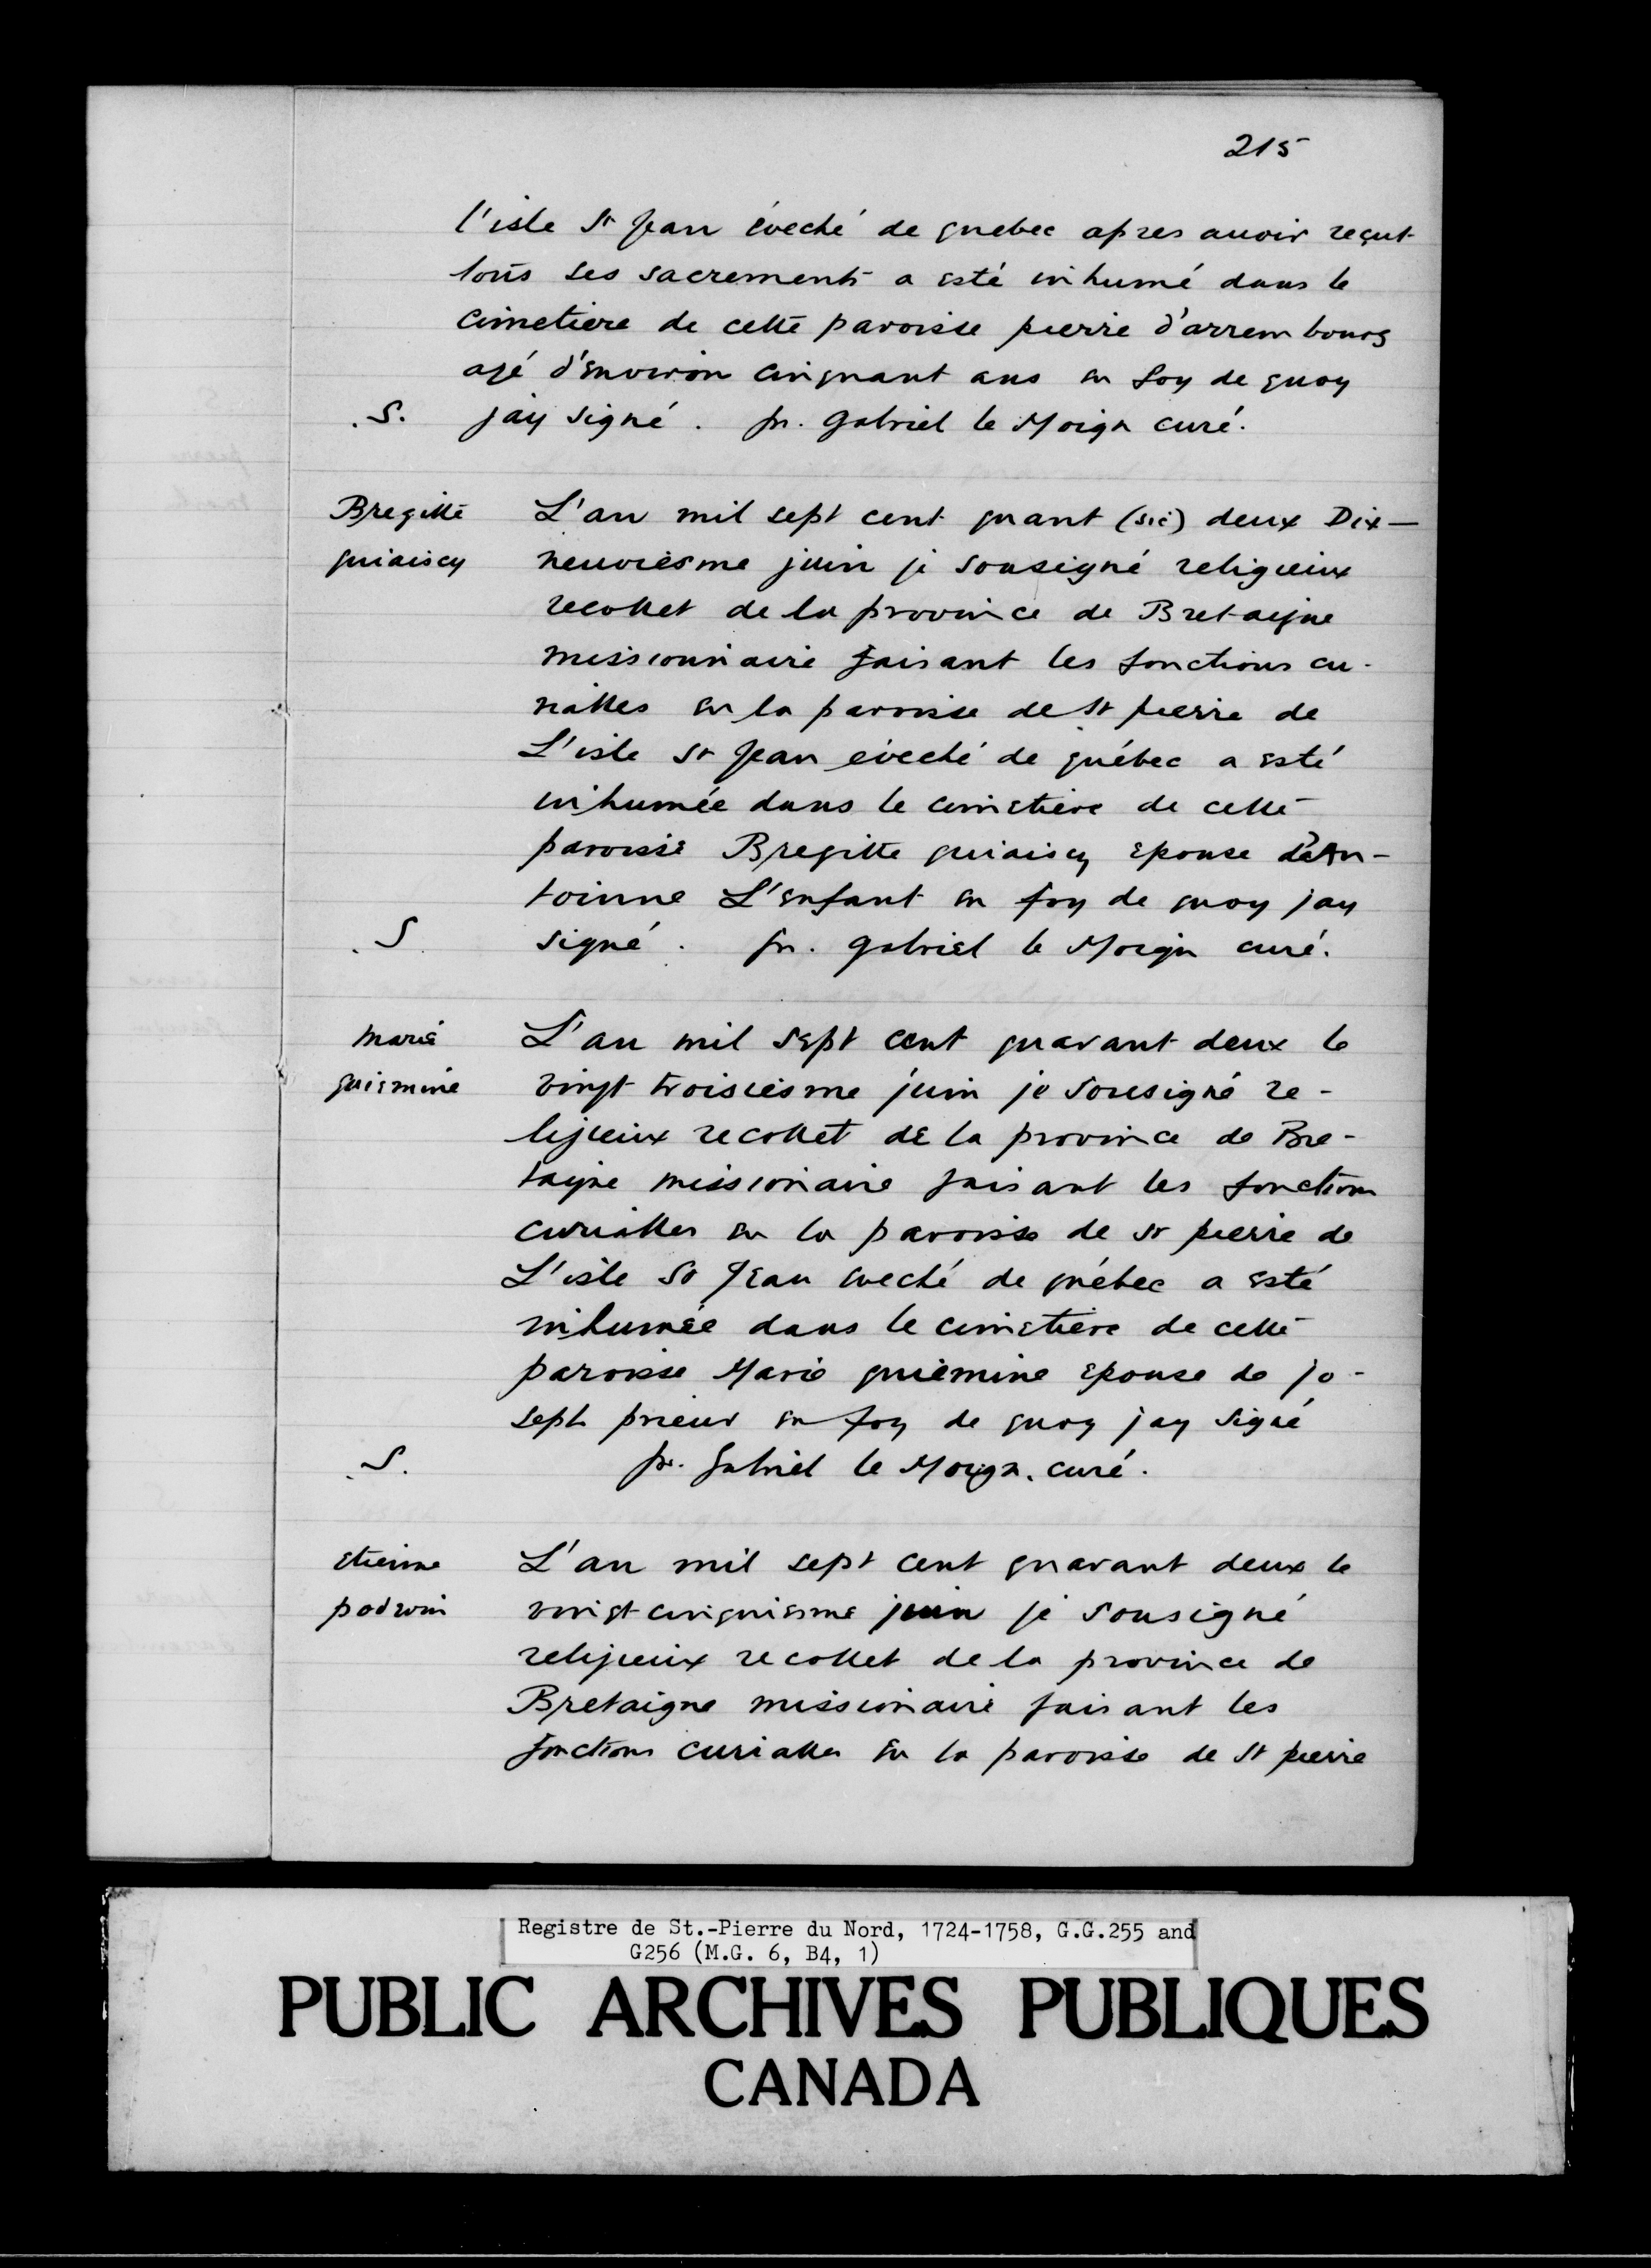 215
l'isle St Jean évéché de quebec apres auoir reçut
tous ses sacrements a esté inhumé dans le
cimetiere de cette paroisse pierre d'arrembourg
agé d'enuiron cinquant ans en foy de quoy
.S. jay signé. fr. gabriel le Moign curé.
Bregitte L'an mil sept cent quant (sic) deux Dix-
quiaiscy neuviesme juin je sousigné religieux
recollet de la province de Bretaigne
missionnaire faisant les fonctions cu-
rialles en la paroisse de St pierre de
L'isle St Jean évéché de québec a esté
inhumée dans le cimetiere de cette
paroisse Bregitte quiaiscy epouse d'An-
toinne L'enfant en foy de quoy jay
.S. signé. fr. gabriel le Moign curé.
marie L'an mil sept cent quarant deux le
guiemine vingt troisiesme juin je sousigné re-
ligieux recollet de la province de Bre-
taigne missionaire faisant les fonctions
curialles en la paroisse de St pierre de
L'isle St Jean eveché de québec a esté
inhumée dans le cimetiere de cette
paroisse Marie guiemine epouse de jo-
seph prieur en foy de quoy jay signé
.S. fr. gabriel le Moign. curé.
etienne L'an mil sept cent quarant deux le
podvin vingt cinquiesme juin je sousigné
religieux recollet de la province de
Bretaigne missionaire faisant les
fonctions curialles en la paroisse de St pierre
Registre de St.-Pierre du Nord, 1724-1758, G.G.255 and
G256 (M.G. 6, B4, 1)
PUBLIC ARCHIVES PUBLIQUES
CANADA